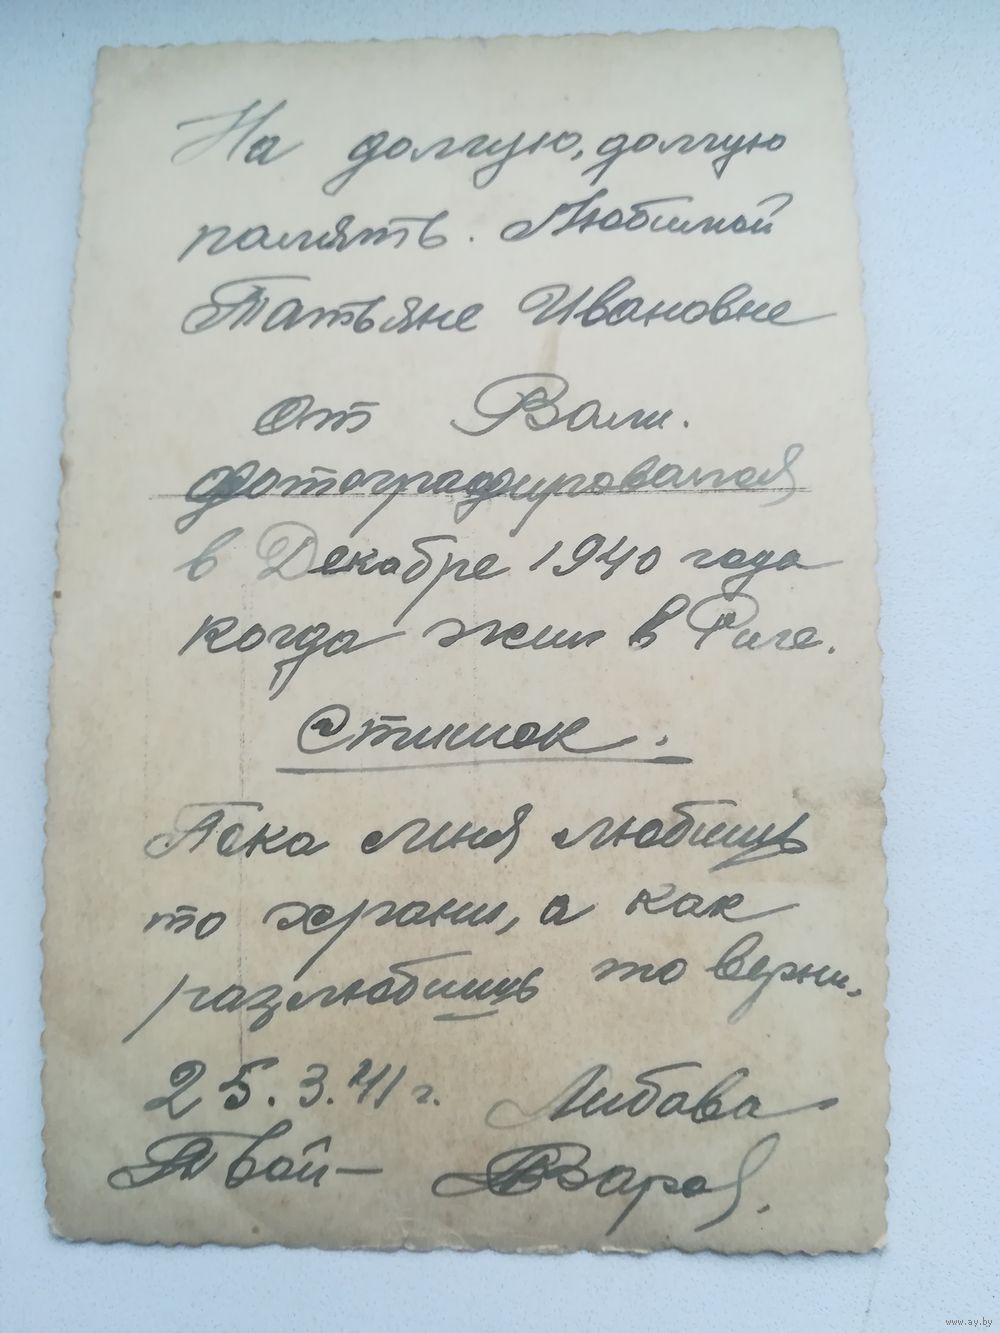 На долгую, долгую
память. Любимой
Татьяне Ивановне
от Вали.
фотографировался
в Декабре 1940 года
когда жил в Риге.
Стишок.
Пока меня любишь
то храни, а как
разлюбишь то верни.
25.3.41 г. Либава
Твой –
www.ay.by